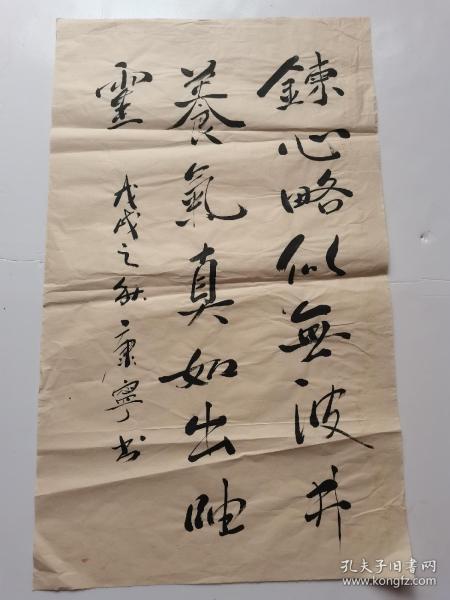 鍊心略似無波井
養氣真如出岫
雲
戊戌之秋康寧書
孔夫子旧书网
www.kongfz.com